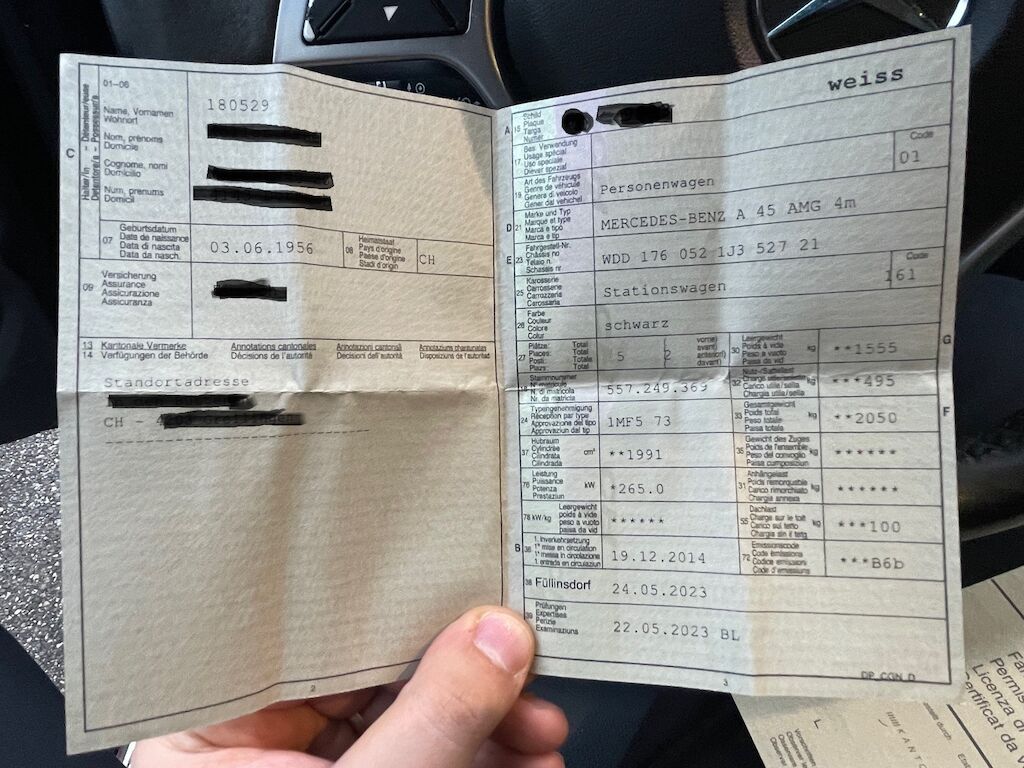 01-06
Name, Vornamen
Wohnort
Nom, prénoms
Domicile
Cognome, nomi
Domicilio
Num, prenums
Domicil
180529
C
Halter/in
07
Geburtsdatum
Date de naissance
Data di nascita
Data da nasch.
03.06.1956
08
Heimatstaat
Pays d'origine
Paese d'origine
Stadi d'origin
CH
09
Versicherung
Assurance
Assicurazione
Assicuranza
13 Kantonale Vermerke Annotations cantonales Annotazioni cantonali Annotaziuns chantunalas
14 Verfügungen der Behörde Décisions de l'autorité Decisioni dell'autorità Disposiziuns da l'autoritad
Standortadresse
CH - 4
2
weiss
A
Schild
Plaque
Targa
Numer
17
Bes. Verwendung
Usage spécial
Uso speciale
Diever spezial
Code
01
19
Art des Fahrzeugs
Genre de véhicule
Genere di veicolo
Gener dal vehichel
Personenwagen
D 21
Marke und Typ
Marque et type
Marca e tipo
Marca e tip
MERCEDES-BENZ A 45 AMG 4m
E 23
Fahrgestell-Nr.
Châssis no
Telaio n.
Schassis nr
WDD 176 052 1J3 527 21
25
Karosserie
Carrosserie
Carrozzeria
Carossaria
Stationswagen
Code
161
26
Farbe
Couleur
Colore
Colur
schwarz
27
Plätze: Total
Places: Total
Posti: Totale
Plazs: Total
5
2
vorne
avant
anteriori
davant
30
Leergewicht
Poids à vide
Peso a vuoto
Paisa da vid
kg
**1555
G
18
Stammnummer
N° matricule
N. di matricola
Nr. da matricla
557.249.369
32
Nutz-/Sattellast
Charge utile/sellette
Carico utile/sella
Chargia utila/sella
kg
***495
24
Typengenehmigung
Réception par type
Approvazione del tipo
Approvaziun dal tip
1MF5 73
33
Gesamtgewicht
Poids total
Peso totale
Paisa totala
kg
**2050
F
37
Hubraum
Cylindrée
Cilindrata
Cilindrada
cm³
**1991
35
Gewicht des Zuges
Poids de l'ensemble
Peso del convoglio
Paisa cumposiziun
kg
******
76
Leistung
Puissance
Potenza
Prestaziun
kW
*265.0
31
Anhängelast
Poids remorquable
Carico rimorchiato
Chargia annexa
kg
******
78 kW/kg
Leergewicht
poids à vide
peso a vuoto
paisa da vid
******
55
Dachlast
Charge sur le toit
Carico sul tetto
Chargia sin il tetg
kg
***100
B 36
1. Inverkehrsetzung
1re mise en circulation
1a messa in circolazione
1. entrada en circulaziun
19.12.2014
72
Emissionscode
Code émissions
Codice emissioni
Code d'emissiuns
***B6b
38 Füllinsdorf
24.05.2023
39
Prüfungen
Expertises
Perizie
Examinaziuns
22.05.2023 BL
3
DP CGN D
Licenza di
KANTO